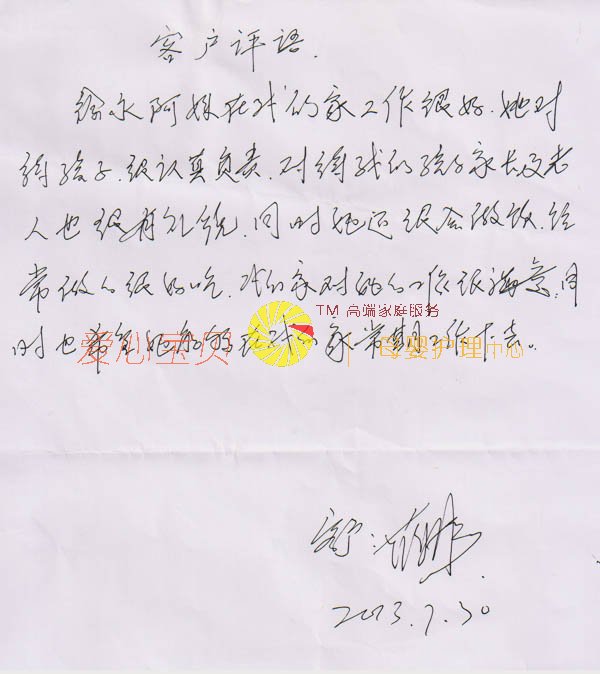 客户评语.
阿姨在我的家工作很好.她对
待孩子.很认真负责.对待我的孩子家长及老
人也很有礼貌.同时她还很会做饭.经
常做的很好吃.我的家对她的工作很满意.同
TM 高端家庭服务
时也希望她能够在我的家常期工作下去。
爱心宝贝 母婴护理中心
客户:
2013.7.30